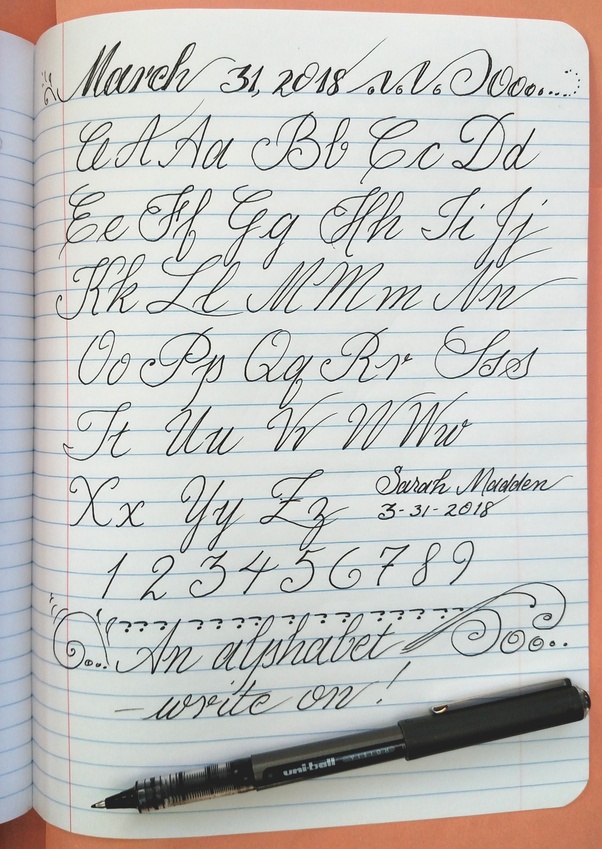 March 31, 2018
A A A a B b C c D d
E e F f G g H h I i J j
K k L l M M m N n
O o P p Q q R r S s s
T t U u V v W W w
X x Y y Z z
Sarah Madden
3-31-2018
1 2 3 4 5 6 7 8 9
An alphabet
- write on!
uni-ball